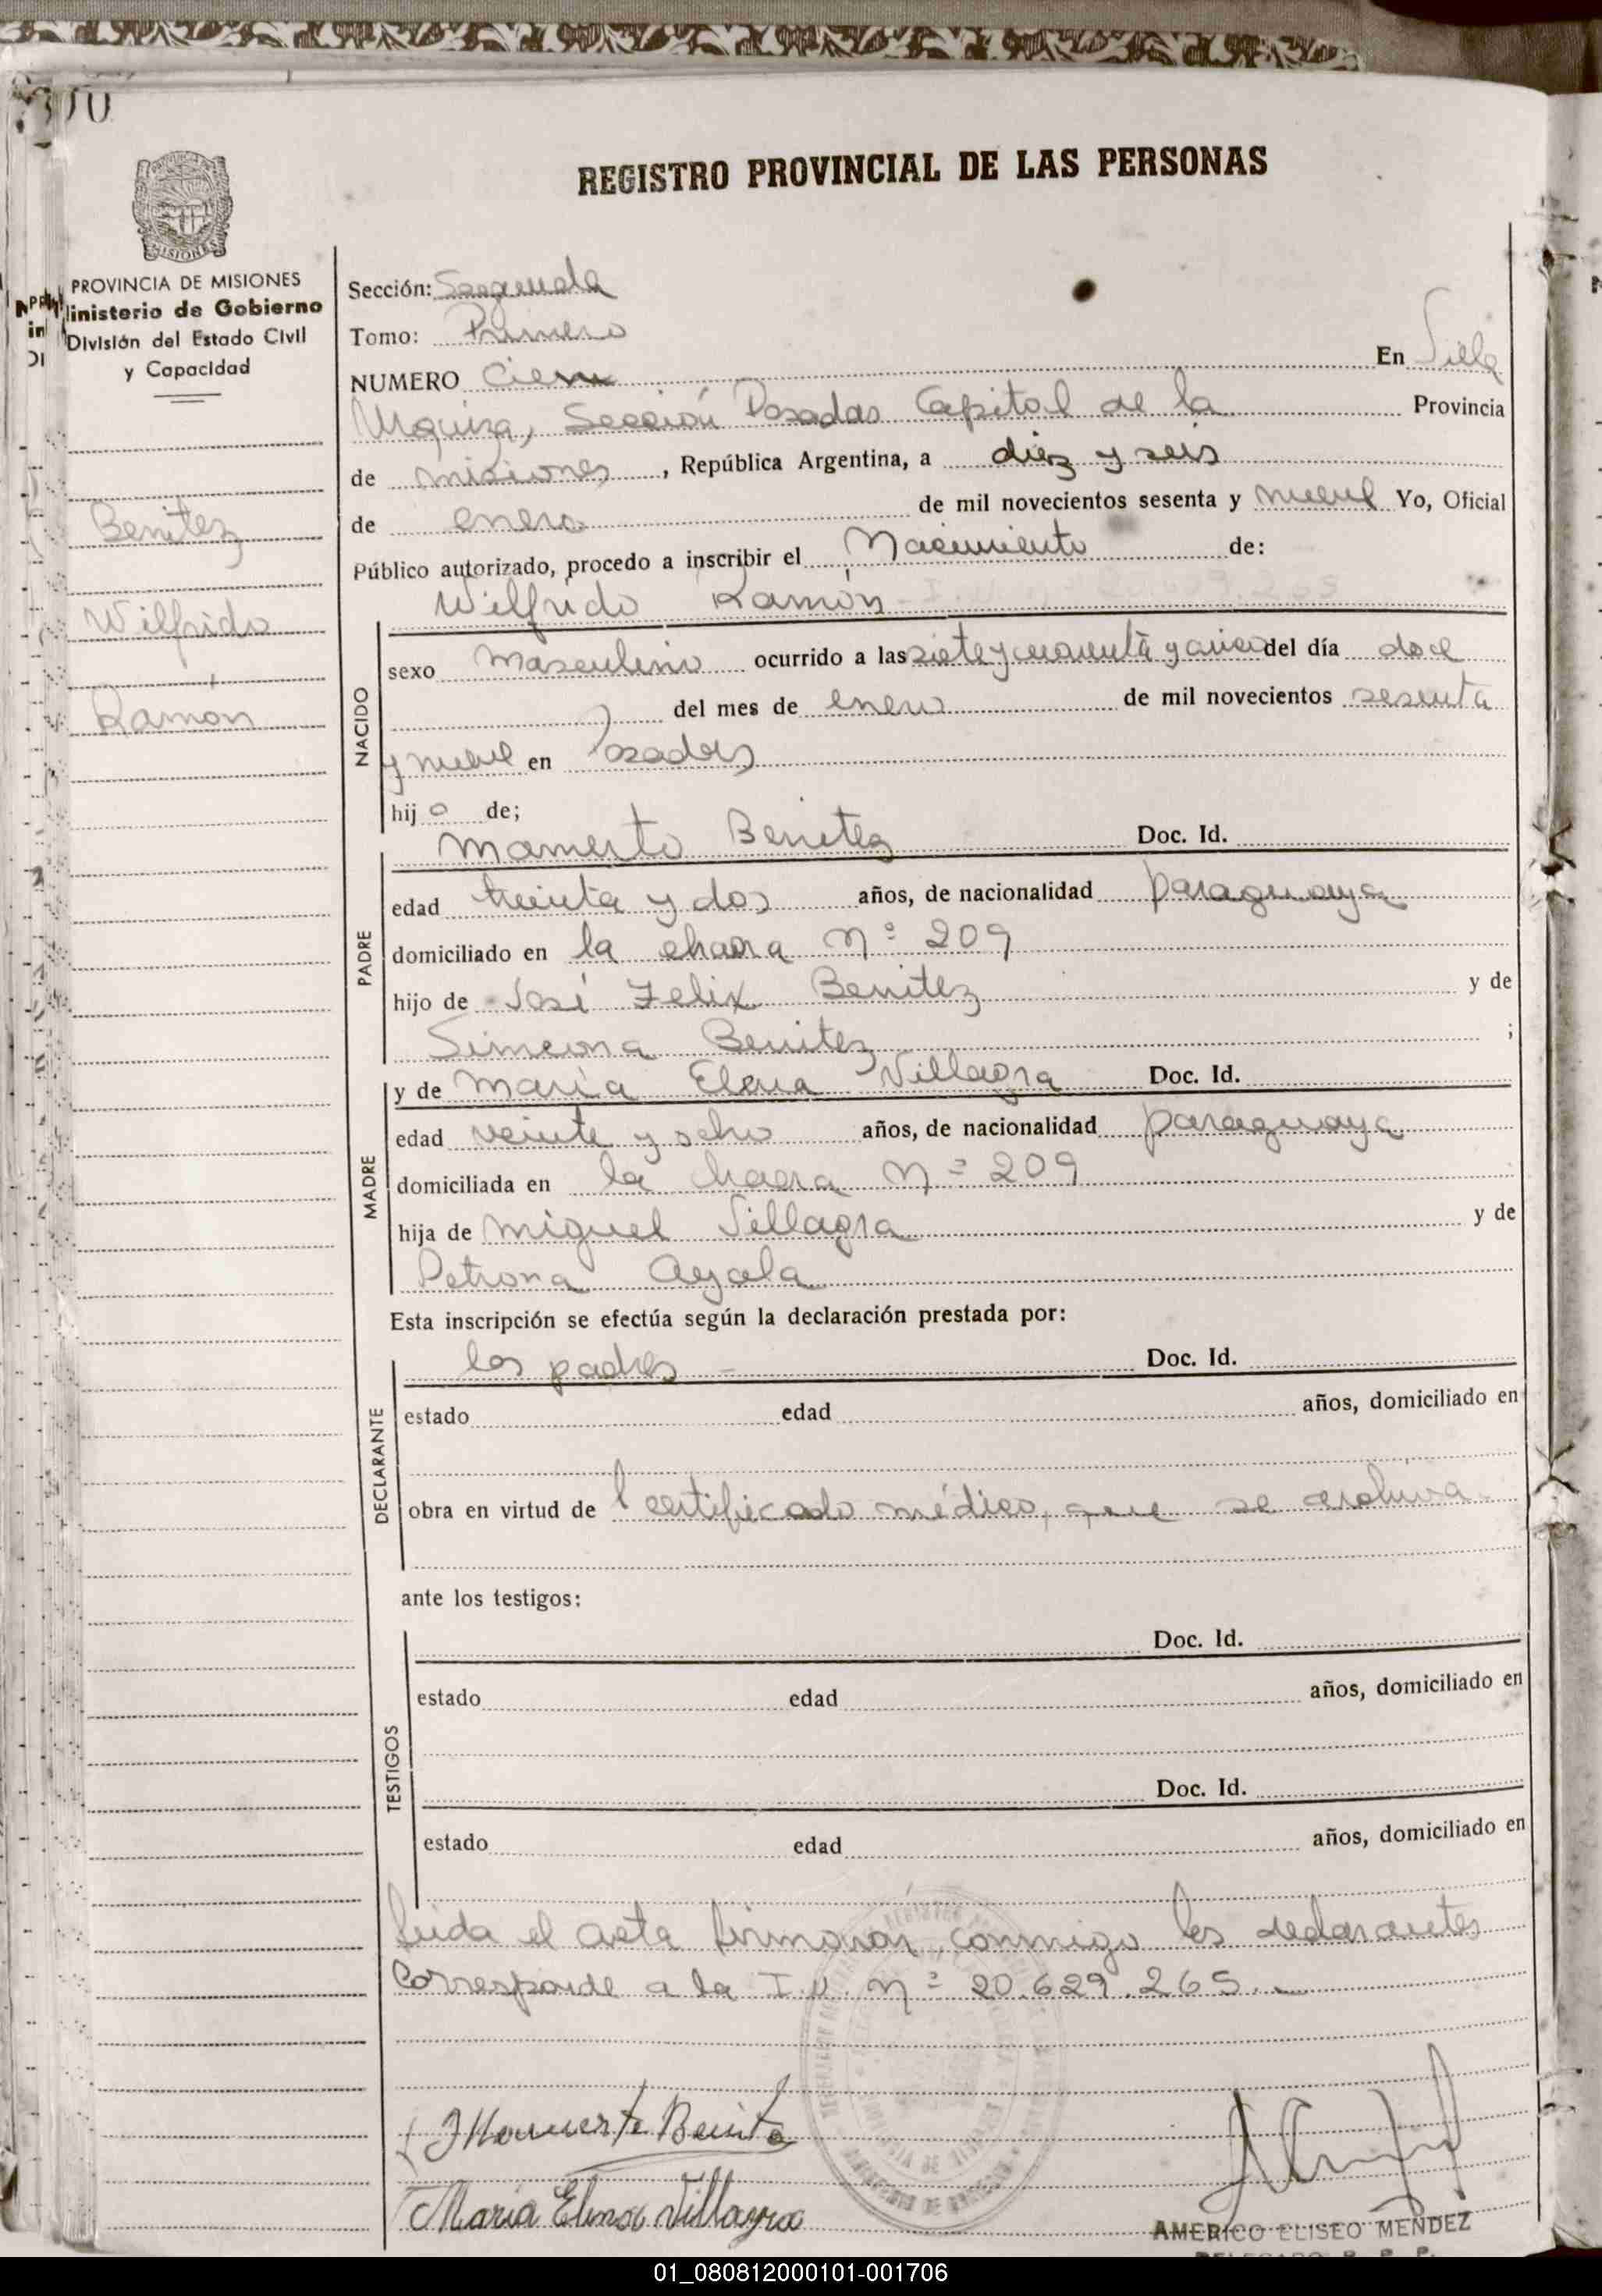 100
REGISTRO PROVINCIAL DE LAS PERSONAS
MISIONES
PROVINCIA DE MISIONES
Ministerio de Gobierno
División del Estado Civil
y Capacidad
Benitez
Wilfrido
Ramón
Sección: Segunda
Tomo: Primero
NUMERO Cien En Villa
Urquiza, Sección Posadas Capital de la Provincia
de misiones, República Argentina, a diez y seis
de enero de mil novecientos sesenta y nueve Yo, Oficial
Público autorizado, procedo a inscribir el Nacimiento de:
Wilfrido Ramón
NACIDO
sexo masculino ocurrido a las siete y cuarenta y cinco del día doce
del mes de enero de mil novecientos sesenta
y nueve en Posadas
hijo de;
PADRE
Mamerto Benitez Doc. Id.
edad treinta y dos años, de nacionalidad paraguaya
domiciliado en la chacra Nº 209
hijo de José Felix Benitez y de
Simeona Benitez ;
MADRE
y de María Elena Villagra Doc. Id.
edad veinte y ocho años, de nacionalidad paraguaya
domiciliada en la chacra Nº 209
hija de Miguel Villagra y de
Petrona Ayala
Esta inscripción se efectúa según la declaración prestada por:
DECLARANTE
los padres - Doc. Id.
estado edad años, domiciliado en
obra en virtud de l certificado médico, que se archiva.
ante los testigos:
TESTIGOS
Doc. Id.
estado edad años, domiciliado en
Doc. Id.
estado edad años, domiciliado en
Leida el acta firmaron, conmigo los declarantes
Corresponde a la I.N. Nº 20.629.265.-
Mamerto Benitez
Maria Elena Villagra
AMERICO ELISEO MENDEZ
DELEGADO R. P. P.
01_080812000101-001706